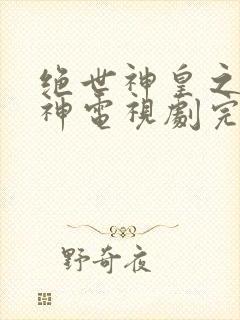 绝世神皇之
神電視劇完
野奇夜